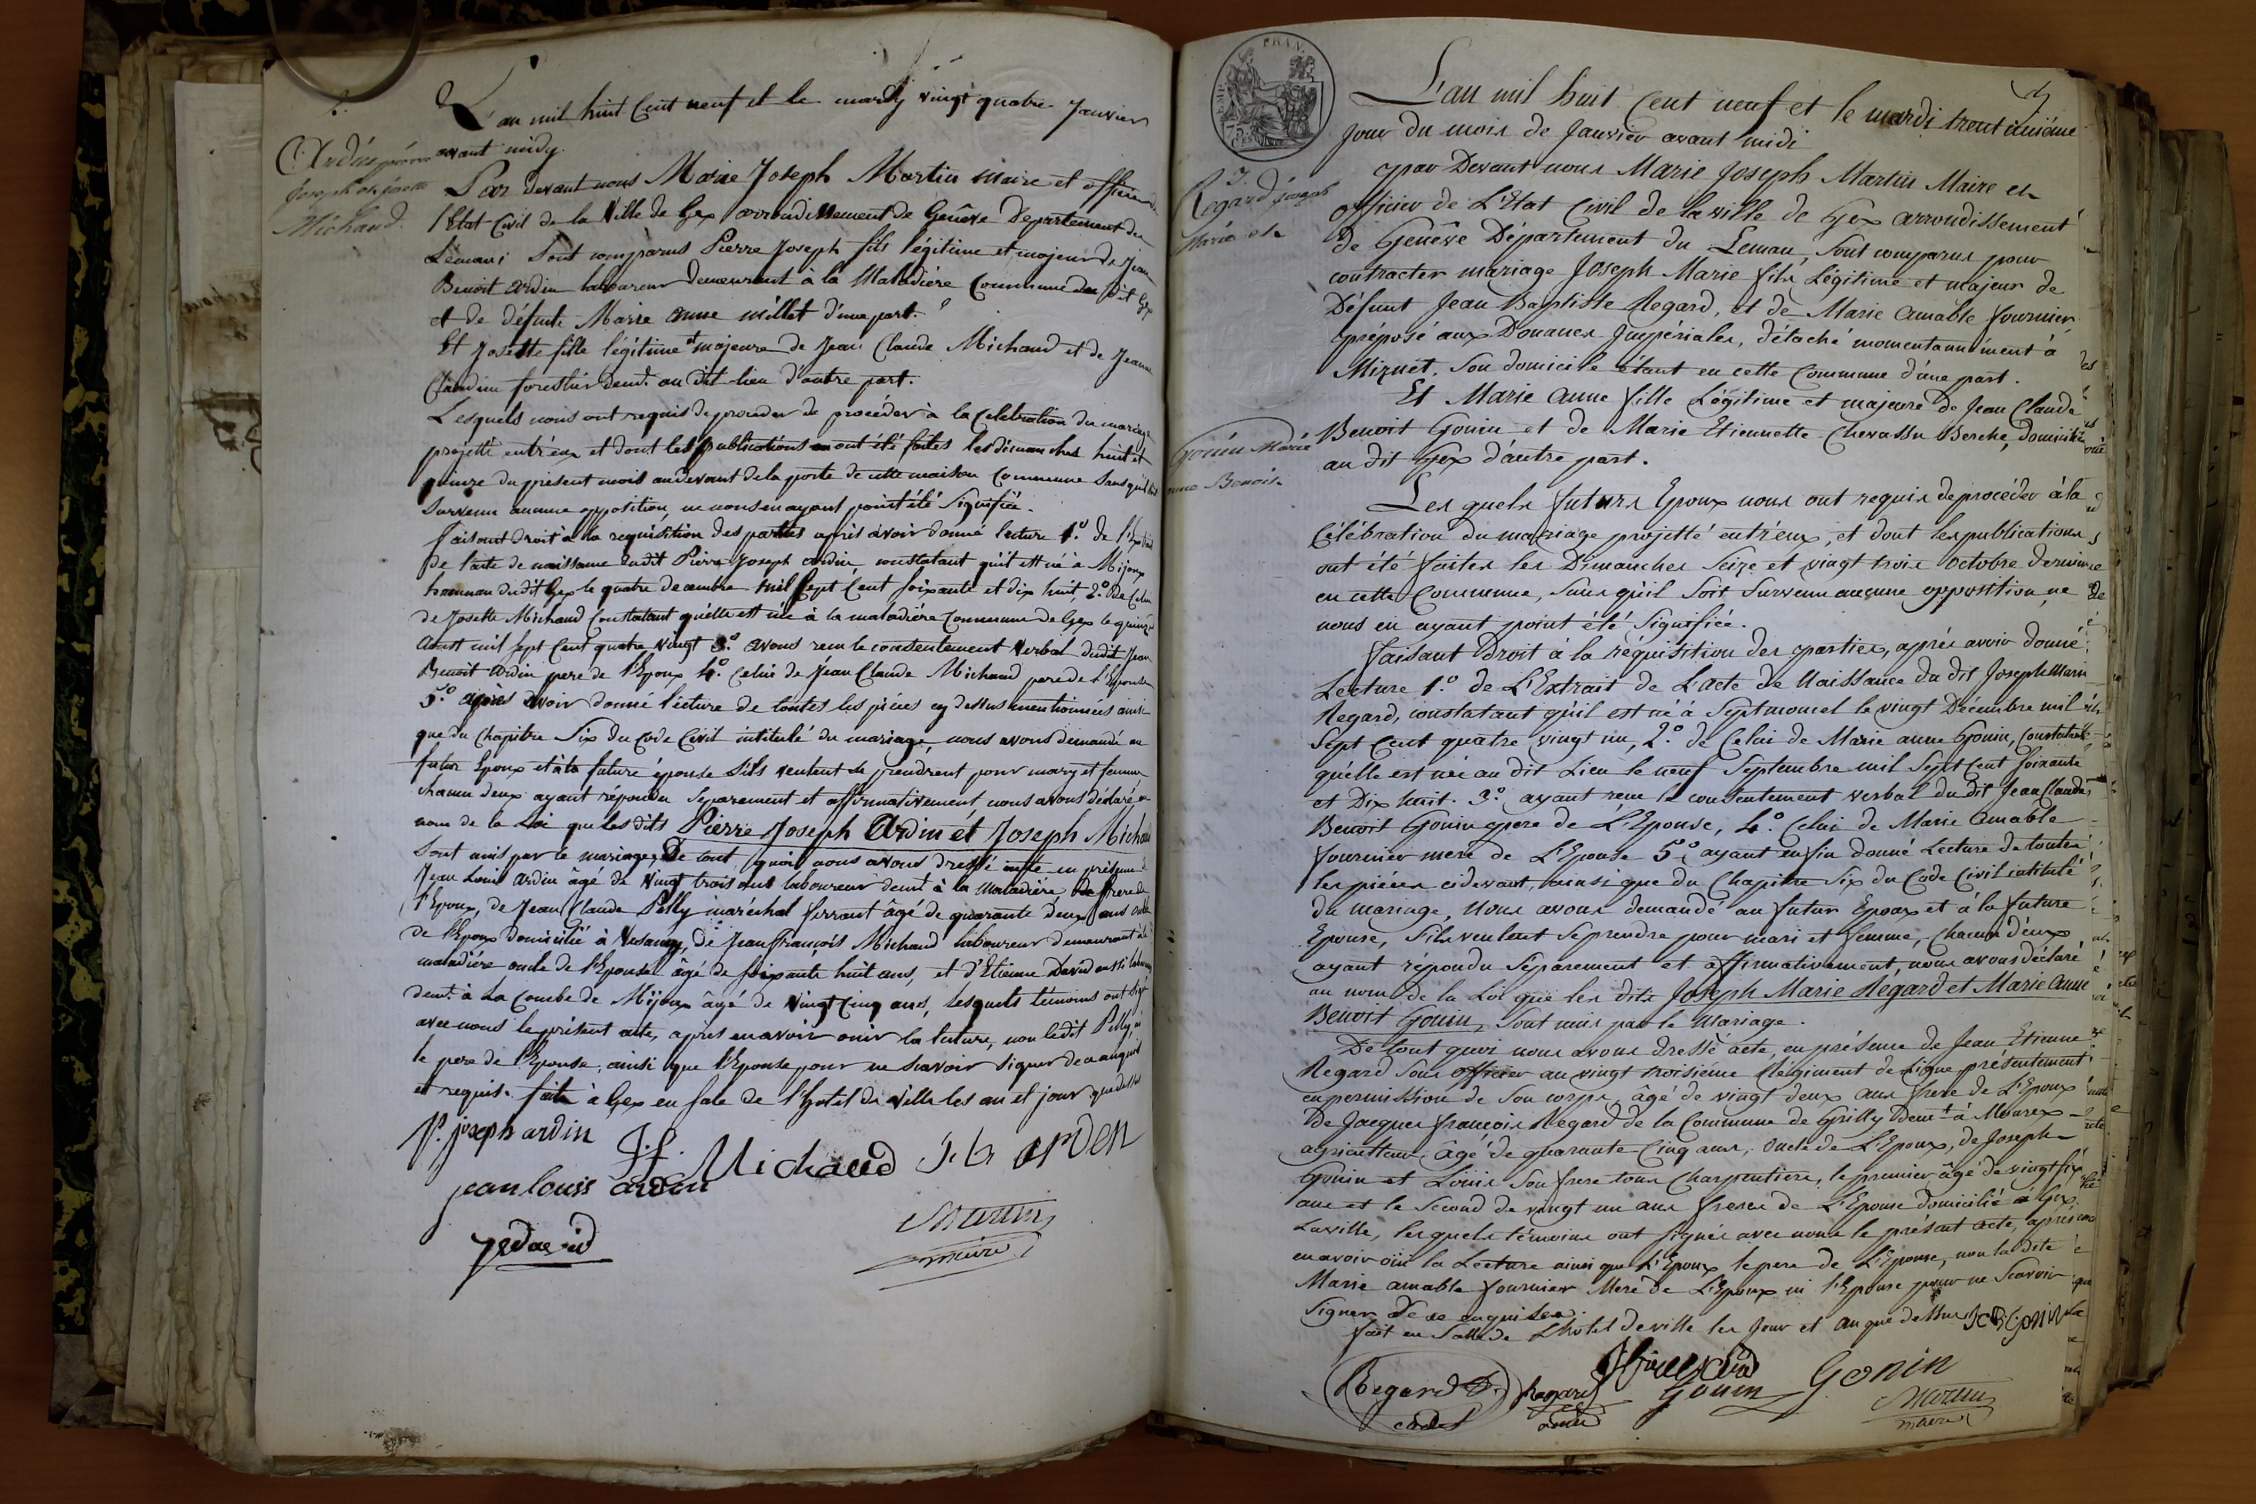 2.
Ardin pierre
Joseph et josette
Michaud.
L'an mil huit Cent neuf et le mardy vingt quatre Janvier
avant midy.
Par devant nous Marie Joseph Martin maire et officier de
l'Etat Civil de la Ville de Gex arrondissement de Genêve Département du
Léman; Sont comparus Pierre Joseph fils légitime et majeur de Jean
Benoit Ardin laboureur demeurant à la Maladière Commune du dit Gex
et de défunte Marie anne millet d'une part.
Et Josette fille légitime et majeure de Jean Claude Michaud et de Jeanne
Claudine forestier demt. au dit lieu d'autre part.
Lesquels nous ont requis de proceder de procéder à la Celebration du mariage
projetté entr'eux et dont les publications en ont été faites les dimanches huit et
quinze du présent mois au devant de la porte de cette maison Commune Sans qu'il soit
Survenu aucune opposition, ne nous en ayant point été Signifiée.
faisant droit à la requisition des parties après avoir donné lecture 1.º de l'Extrait
de l'acte de naissance dudit Pierre Joseph ardin, constatant qu'il est né à Mijoux
hameau dudit Gex le quatre decembre mil Sept Cent soixante et dix huit 2.º de Celui
de Josette Michaud Constatant qu'elle est née à la maladière Commune de Gex le quinze
Aoust mil sept Cent quatre vingt 3.º avons reçu le consentement verbal dudit Jean
Benoit Ardin pere de l'Epoux 4.º Celui de Jean Claude Michaud pere de l'Epouse
5.º après avoir donné lecture de toutes les piéces cy dessus mentionnées ainsi
que du Chapitre Six du Code Civil intitulé du mariage, nous avons demandé au
futur Epoux et à la future épouse S'ils veulent se prendrent pour mary et femme
chacun deux ayant répondu Separement et affirmativement nous avons déclaré au
nom de la Loi que les dits Pierre Joseph Ardin et Joseph Michaud
Sont unis par le mariage, De tout quoi nous avons dressé acte en présence de
Jean Louis Ardin âgé de Vingt trois ans laboureur demt à la Maladière frere de
l'Epoux, de Jean Claude Pelly maréchal ferrant âgé de quarante deux ans oncle
de l'Epoux domicilié à Vesancy, de Jean françois Michaud laboureur demeurant à la
maladière oncle de l'Epouse âgé de soixante huit ans, et d'Etienne David aussi laboureur
demt. à La Combe de Mijoux âgé de vingt cinq ans, lesquels témoins ont signé
avec nous le présent acte, après en avoir ouir la lecture, non ledit Pelly, ni
le pere de l'Epouse, ainsi que l'Epouse pour ne scavoir signer de ce enquis
et requis. fait à Gex en sale de l'hotel de ville les an et jour que dessus
P. joseph ardin
J.f. Michaud
J. B. arden
jean louis ardin
Martin
maire
david
3.
Regard joseph
Marie et
Gonin Marie
anne Benoit.
L'an mil huit Cent neuf et le mardi trent unième
Jour du mois de Janvier avant midi
par Devant nous Marie Joseph Martin Maire et
officier de L'Etat Civil de la ville de Gex arrondissement
de Genêve Département du Leman, Sont comparus pour
contracter mariage Joseph Marie fils Légitime et majeur de
Défunt Jean Baptiste Regard, et de Marie Amable fournier,
préposé aux Douanes Impériales, détaché momentannément à
Miznet. Son domicile étant en cette Commune d'une part.
Et Marie Anne fille Légitime et majeure de Jean Claude
Benoit Gonin et de Marie Etiennette Chevassu Berche, Domiciliés
au dit Gex d'autre part.
Les quels futurs Epoux nous ont requis de procéder à la
Célébration du mariage projetté entr'eux, et dont les publications
ont été faites les Dimanches Seize et vingt trois octobre dernier
en cette Commune, Sans qu'il Soit Survenu aucune opposition, ne
nous en ayant point été Signifiée.
faisant Droit à la réquisition des parties, après avoir donné
Lecture 1.º de L'Extrait de L'acte de Naissance du dit Joseph Marie
Regard, constatant qu'il est né à Septmoncel le vingt Décembre mil
Sept Cent quatre vingt un, 2.º de Celui de Marie anne Gonin, Constatant
qu'elle est née au dit Lieu le neuf Septembre mil Sept Cent Soixante
et Dix huit. 3.º ayant reçu le consentement verbal du dit Jean Claude
Benoit Gonin pere de L'Epouse, 4.º Celui de Marie Amable
fournier mere de L'Epouse 5.º ayant enfin donné Lecture de toutes
les piéces cidevant, ainsi que du Chapitre Six du Code Civil intitulé
du mariage, Nous avons demandé au futur Epoux et à la future
Epouse, S'ils veulent Se prendre pour mari et femme, chacun d'eux
ayant répondu Séparement et affirmativement, nous avons déclaré
au nom de la Loi que les dits Joseph Marie Regard et Marie Anne
Benoit Gonin, Sont unis par le Mariage.
De tout quoi nous avons dressé acte, en présence de Jean Etienne
Regard Sous officier au vingt troisieme Régiment de Ligne présentement
en permission de Son corps, âgé de vingt deux ans frere de L'Epoux
De Jacques françois Regard de la Commune de Grilly Demt à Mourex
agriculteur, âgé de quarante Cinq ans, oncle de L'Epoux, de Joseph
Gonin et Louis Son frere tous Charpentiers, le premier âgé de vingt six
ans et le Second de vingt un ans freres de L'Epouse domiciliés à Gex
La ville, les quels témoins ont Signés avec nous le présent acte, après
en avoir oüi la Lecture ainsi que L'Epoux le pere de L'Epouse, non la dite
Marie amable fournier Mere de L'Epoux ni l'Epouse pour ne Scavoir
Signer De ce enquises.
fait en Salle de L'hotel de ville les Jour et an que dessus JCB Gonin
Regard
cadet
Regard
Gonin
Gonin
Martin
maire